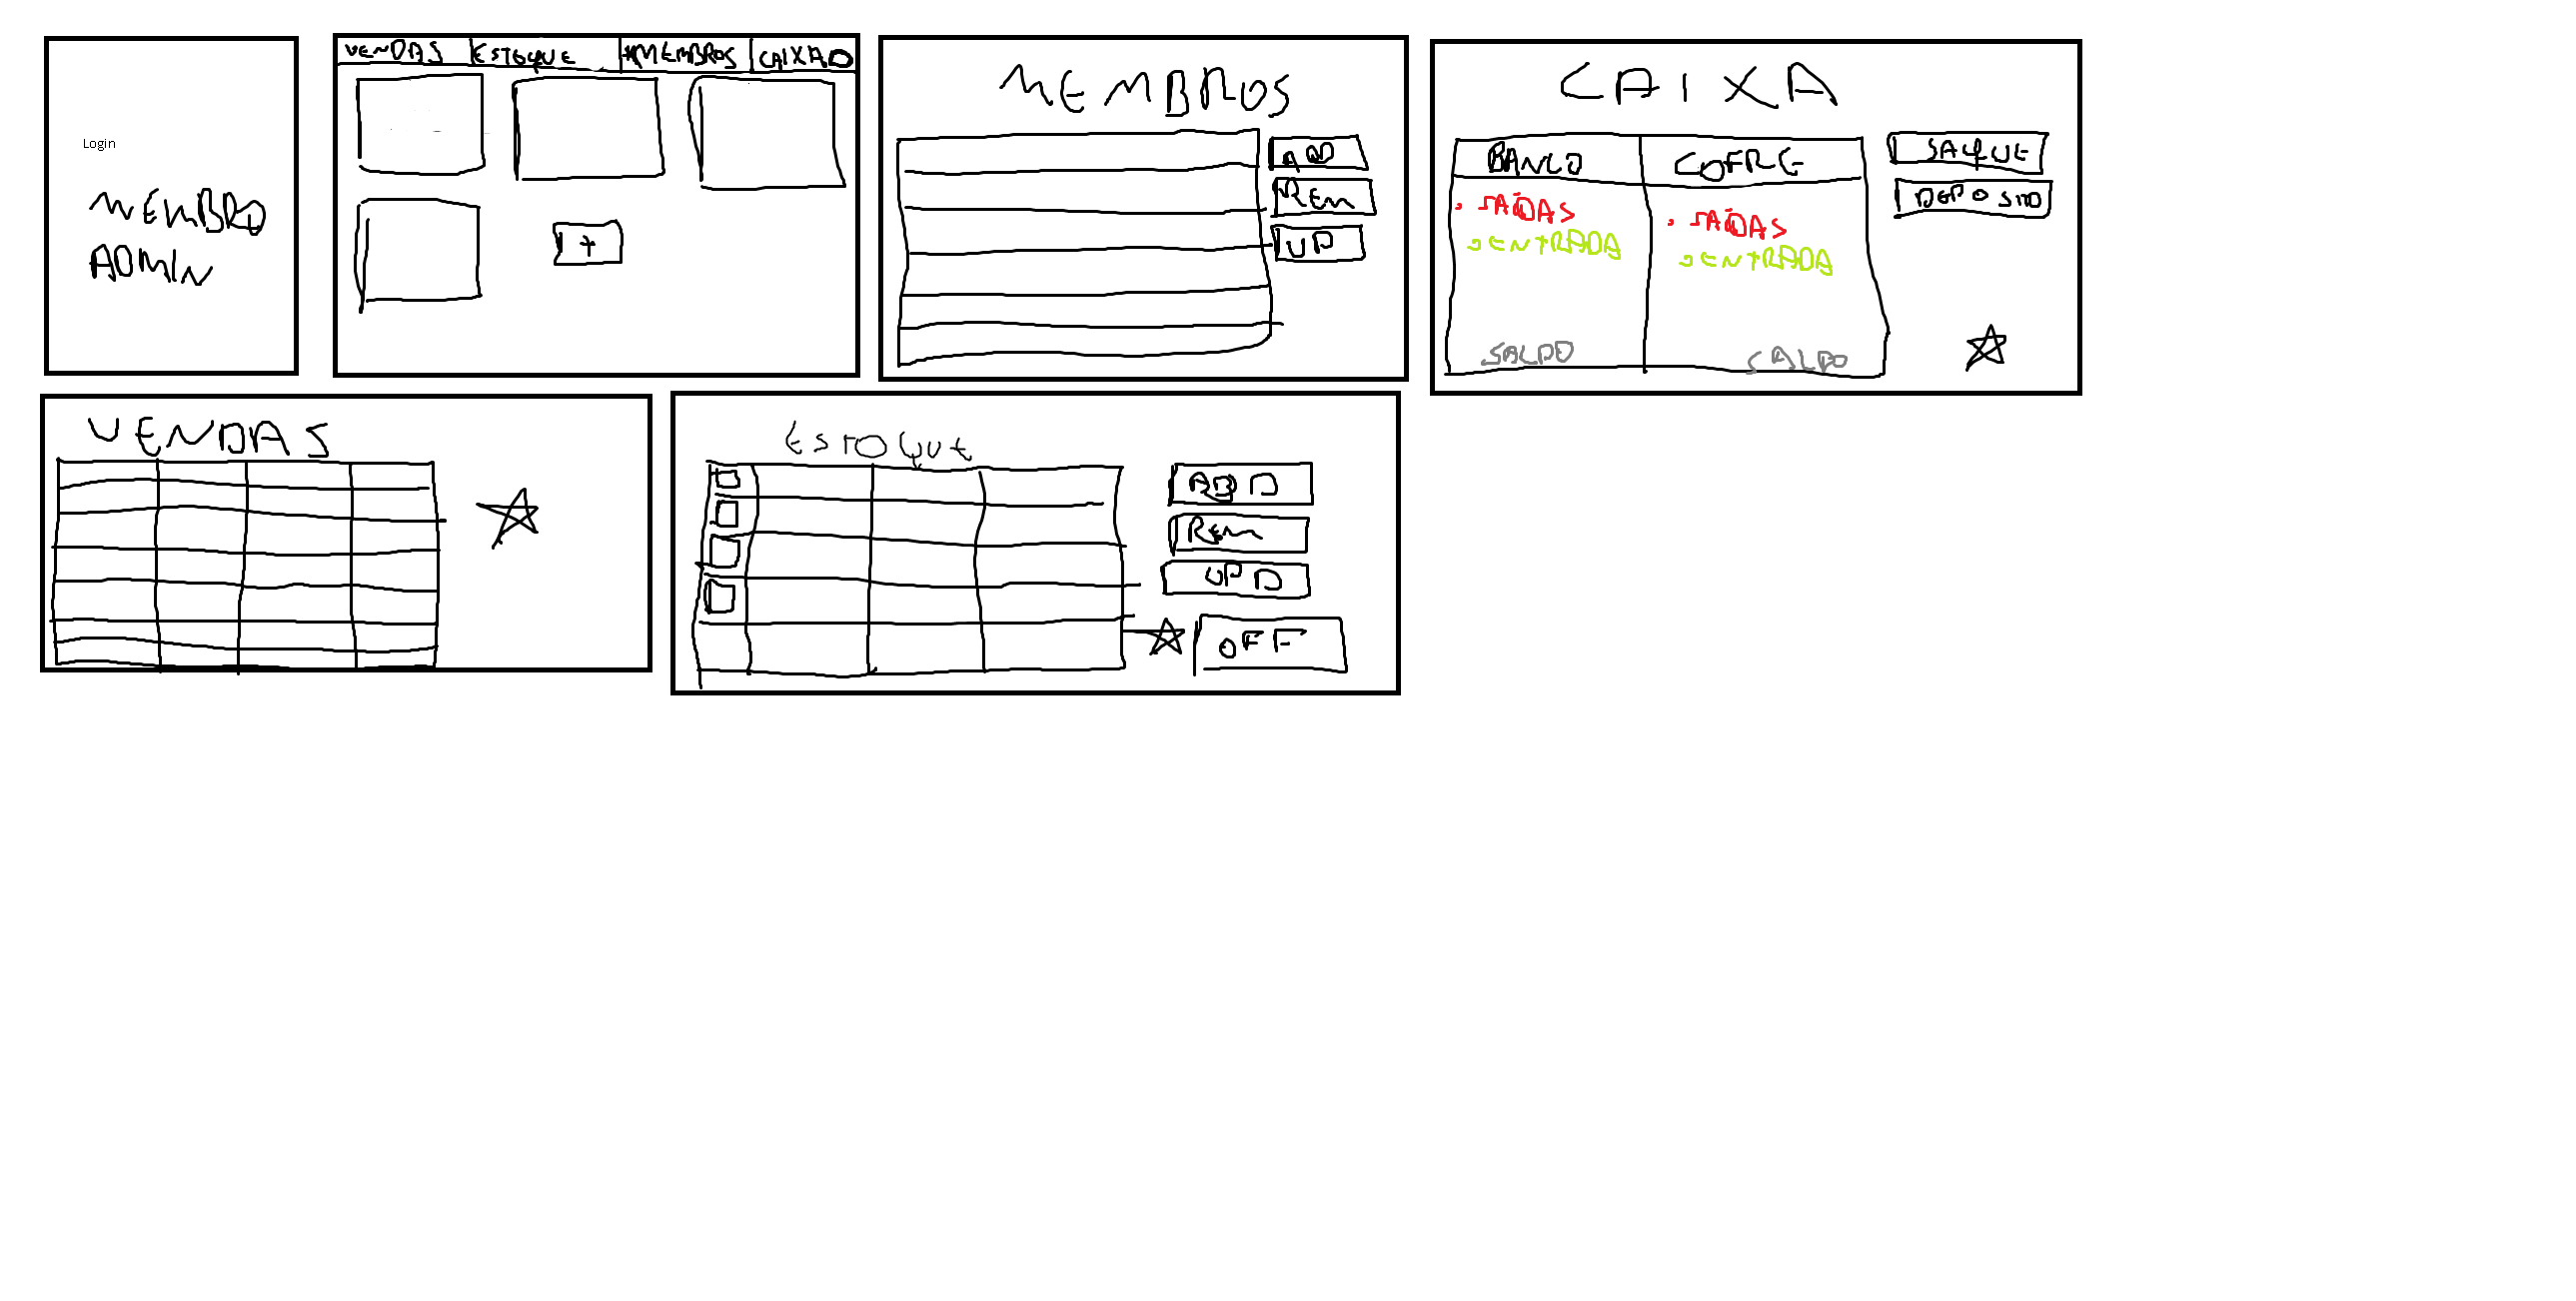 Login
MEMBRO
ADMIN
VENDAS ESTOQUE MEMBROS CAIXA
+
MEMBROS
ADD
REM
UP
CAIXA
BANCO COFRE
SAIDAS SAIDAS
ENTRADA ENTRADA
SALDO SALDO
SAQUE
DEPOSITO
VENDAS
ESTOQUE
ADD
REM
UPD
OFF